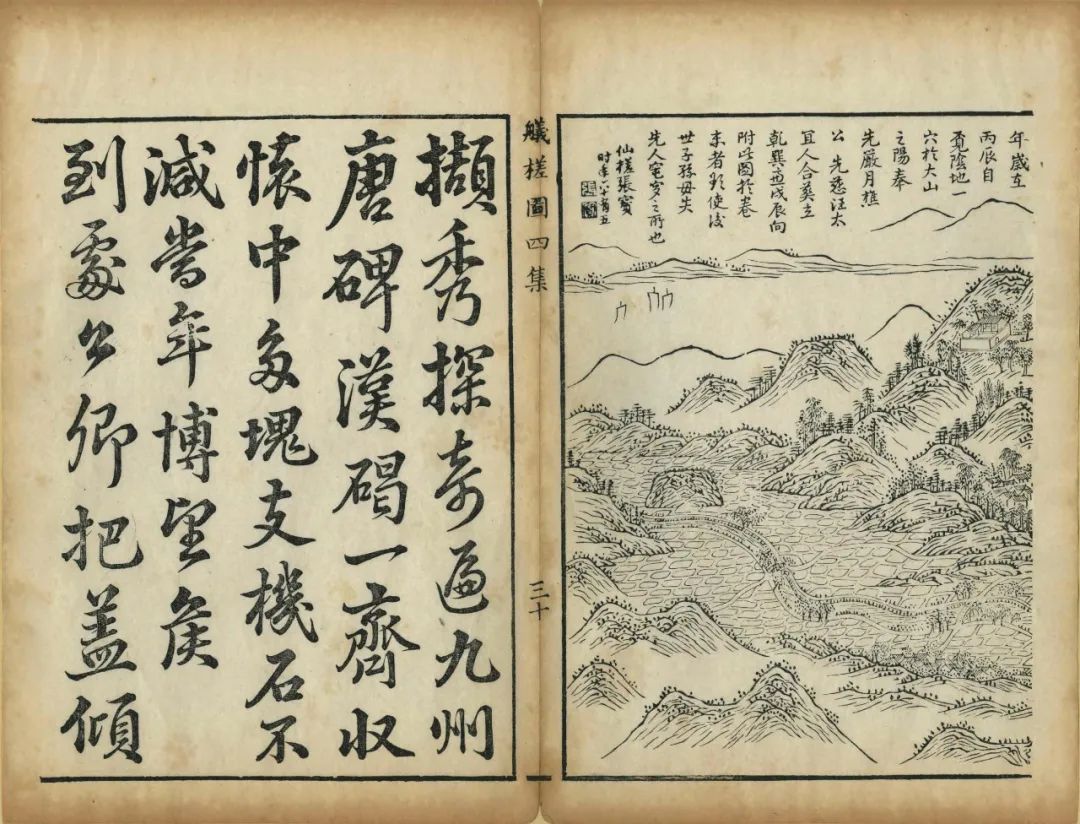 年歲在
丙辰自
覓陰地一
穴於大山
之陽奉
先嚴月樵
公 先慈汪太
宜人合葬立
乾巽戌辰向
附此圖於卷
末者欲使後
世子孫毋失
先人窀穸之所也
仙槎張寶
時年六十有五
艤槎圖四集
三十
擷秀探奇遍九州
唐碑漢碣一齊收
懷中多塊支機石不
減當年博望侯
到處公卿把蓋傾